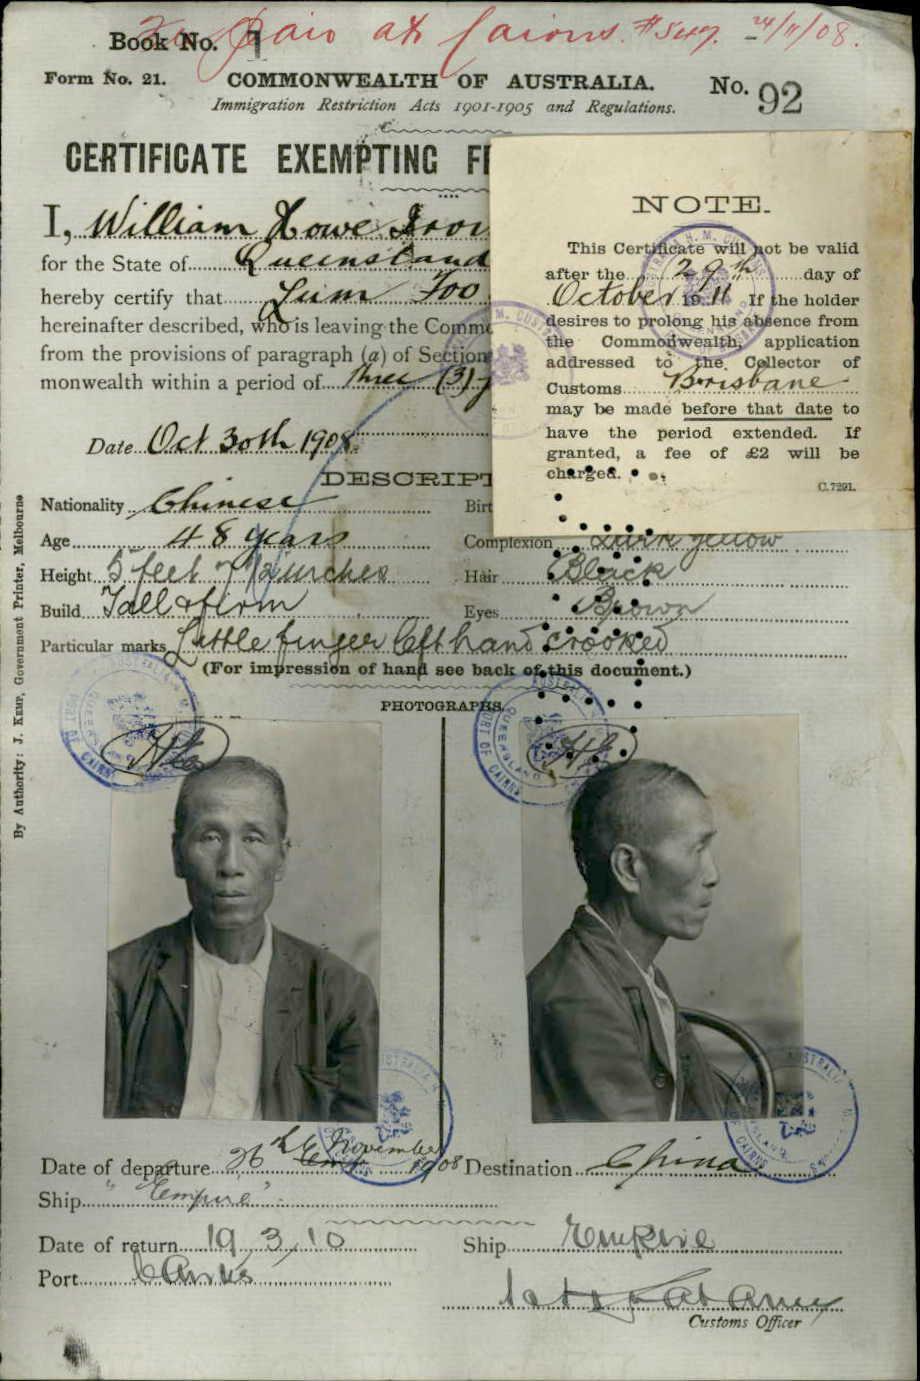 Book No. 1
at Cairns. 24/11/08.
Form No. 21.
COMMONWEALTH OF AUSTRALIA.
No. 92
Immigration Restriction Acts 1901-1905 and Regulations.
CERTIFICATE EXEMPTING F
I, William Howe
for the State of Queensland
hereby certify that Lum Foo
hereinafter described, who is leaving the Comm
from the provisions of paragraph (a) of Section
monwealth within a period of three (3)
Date Oct 30th 1908.
NOTE.
This Certificate will not be valid
after the 29th day of
October 1911 If the holder
desires to prolong his absence from
the Commonwealth, application
addressed to the Collector of
Customs Brisbane
may be made before that date to
have the period extended. If
granted, a fee of £2 will be
charged.
C.7291.
DESCRIPT
Nationality Chinese Birt
Age 48 years Complexion Dark yellow
Height 5 feet 7½ inches Hair Black
Build Tall & firm Eyes Brown
Particular marks Little finger left hand crooked
(For impression of hand see back of this document.)
PHOTOGRAPHS.
By Authority: J. Kemp, Government Printer, Melbourne
Date of departure 26th November 1908 Destination China
Ship "Empire"
Date of return 19.3.10 Ship Empire
Port Cairns
Customs Officer